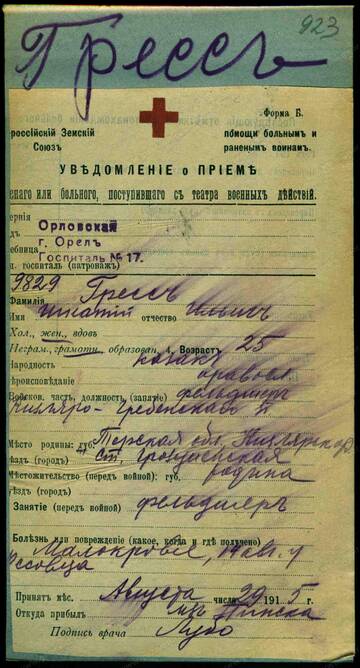 923
Грессъ
Форма Б.
россійскій Земскій
Союзъ
помощи больнымъ и
раненымъ воинамъ.
УВѢДОМЛЕНІЕ о ПРІЕМѢ
енаго или больного, поступившаго съ театра военныхъ дѣйствій.
ернія Орловская
г. Орелъ
ебница Госпиталь № 17.
госпиталь (патронажъ)
9829
Фамилія Грессъ
Имя Игнатій отчество Ильичъ
Хол., жен., вдовъ
Неграм., грамотн., образован. Возрастъ 25
Народность казакъ
ѣроисповѣданіе правосл
Войсков. часть, должность (занятіе) фельдшеръ
Кизляро-Гребенскаго п
Мѣсто родины: губ. Терская обл. Кизлярск
ѣздъ (городъ) ст.
Мѣстожительство (передъ войной): губ. родина
ѣздъ (городъ)
Занятіе (передъ войной) фельдшеръ
Болѣзнь или поврежденіе (какое, когда и гдѣ получено)
Малокровіе,
Принятъ мѣс. Августа числа 29 1915 г.
Откуда прибылъ изъ Пинска
Подпись врача